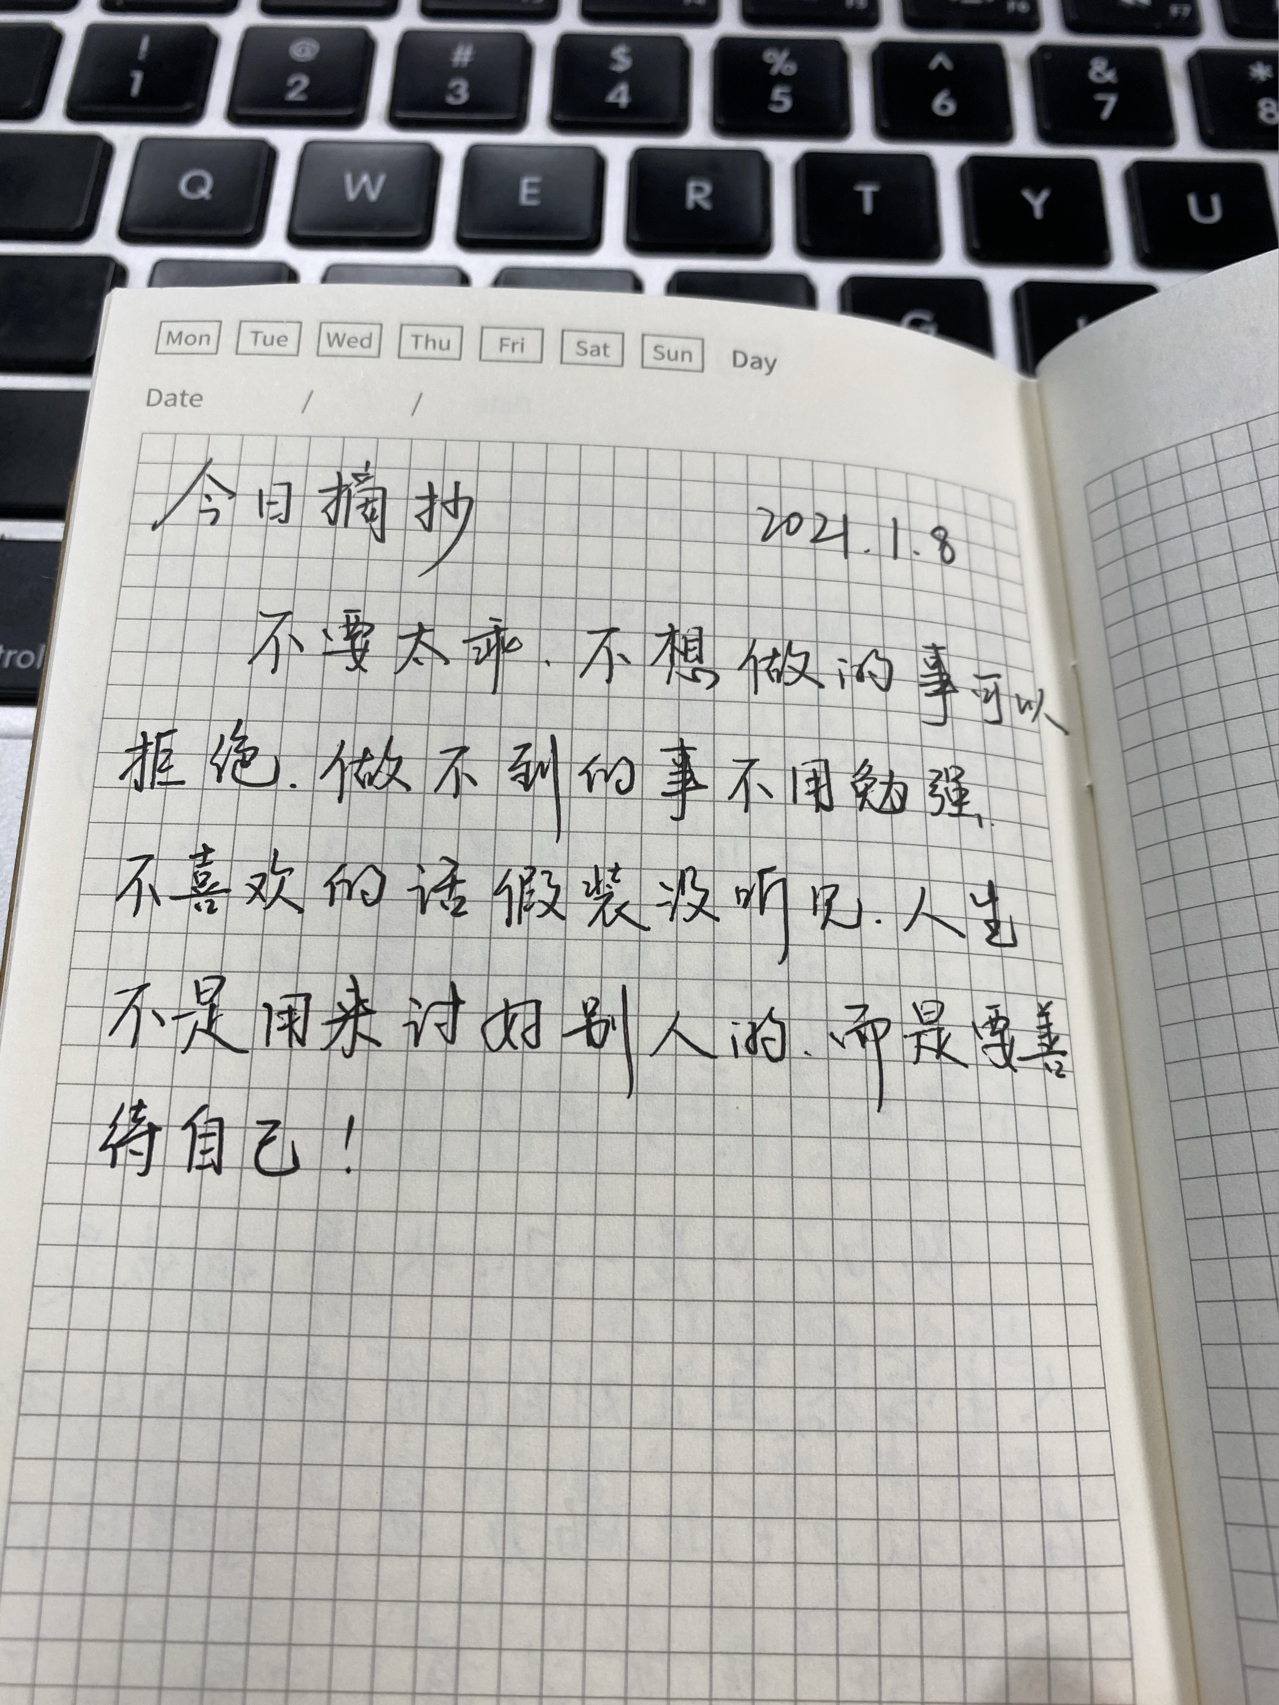 ! @ # $ % ^ & *
1 2 3 4 5 6 7 8
F7
Q W E R T Y U
G
trol
Mon Tue Wed Thu Fri Sat Sun Day
Date / /
今日摘抄 2021.1.8
不要太乖.不想做的事可以
拒绝.做不到的事不用勉强.
不喜欢的话假装没听见.人生
不是用来讨好别人的.而是要善
待自己!